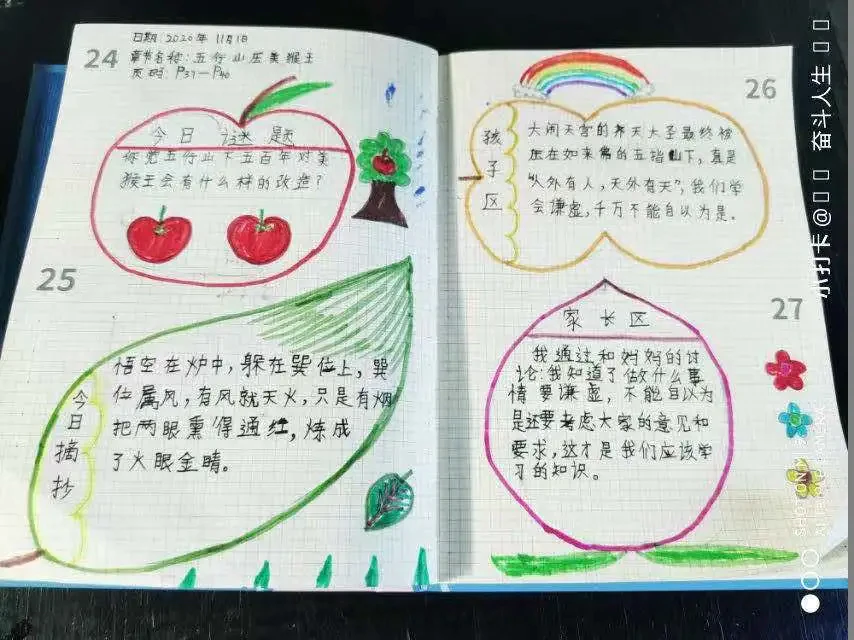 24
日期:2020年11月1日
章节名称:五行山压美猴王
页码:P37—P40
今日谜题
你觉五行山下五百年对美
猴王会有什么样的改造?
25
今日摘抄
悟空在炉中,躲在巽位上,巽
位属风,有风就无火,只是有烟
把两眼熏得通红,炼成
了火眼金睛。
26
孩子区
大闹天宫的齐天大圣最终被
压在如来佛的五指山下,真是
“人外有人,天外有天”,我们学
会谦虚,千万不能自以为是。
27
家长区
我通过和妈妈的讨
论:我知道了做什么事
情要谦虚,不能自以为
是还要考虑大家的意见和
要求,这才是我们应该学
习的知识。
小打卡@
奋斗人生
SHOT ON